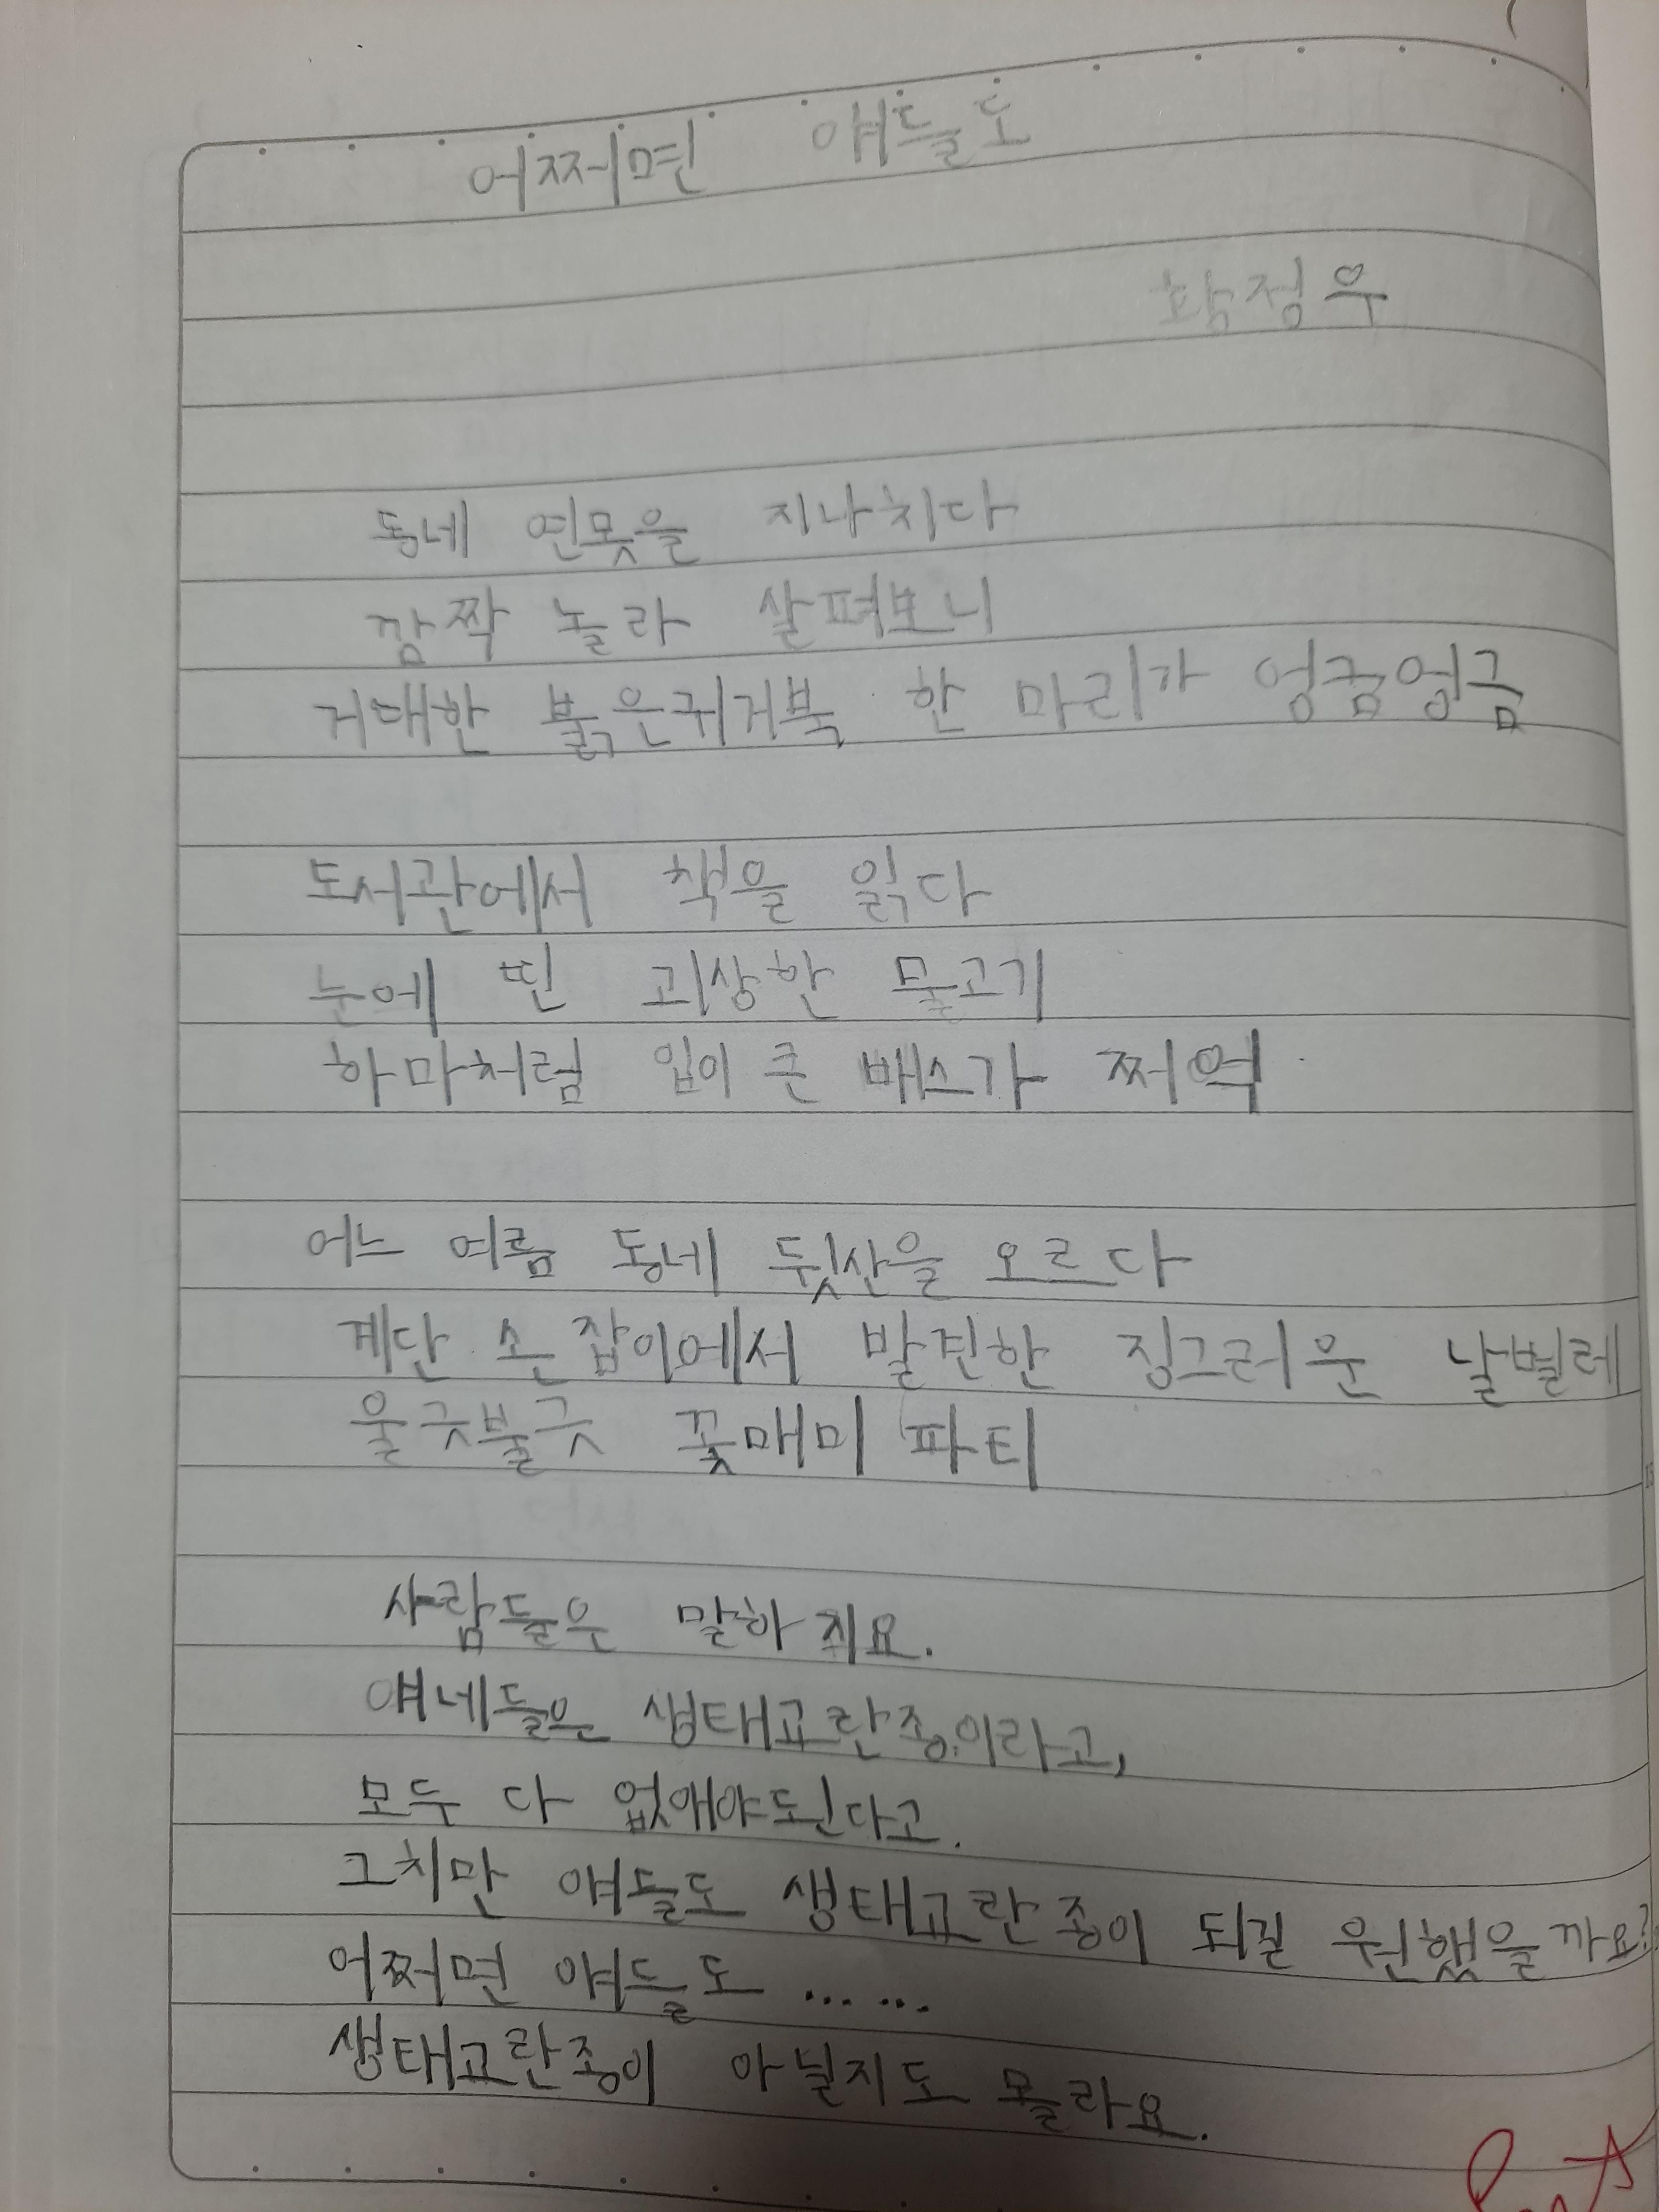 어쩌면 얘들도
함정우
동네 연못을 지나치다
깜짝 놀라 살펴보니
거대한 붉은귀거북 한 마리가 엉금엉금
도서관에서 책을 읽다
눈에 띈 괴상한 물고기
하마처럼 입이 큰 배스가 쩌억
어느 여름 동네 뒷산을 오르다
계단 손잡이에서 발견한 징그러운 날벌레
울긋불긋 꽃매미 파티
사람들은 말하지요.
얘네들은 생태교란종이라고,
모두 다 없애야된다고.
그치만 얘들도 생태교란종이 되길 원했을까요?
어쩌면 얘들도 ......
생태교란종이 아닐지도 몰라요.